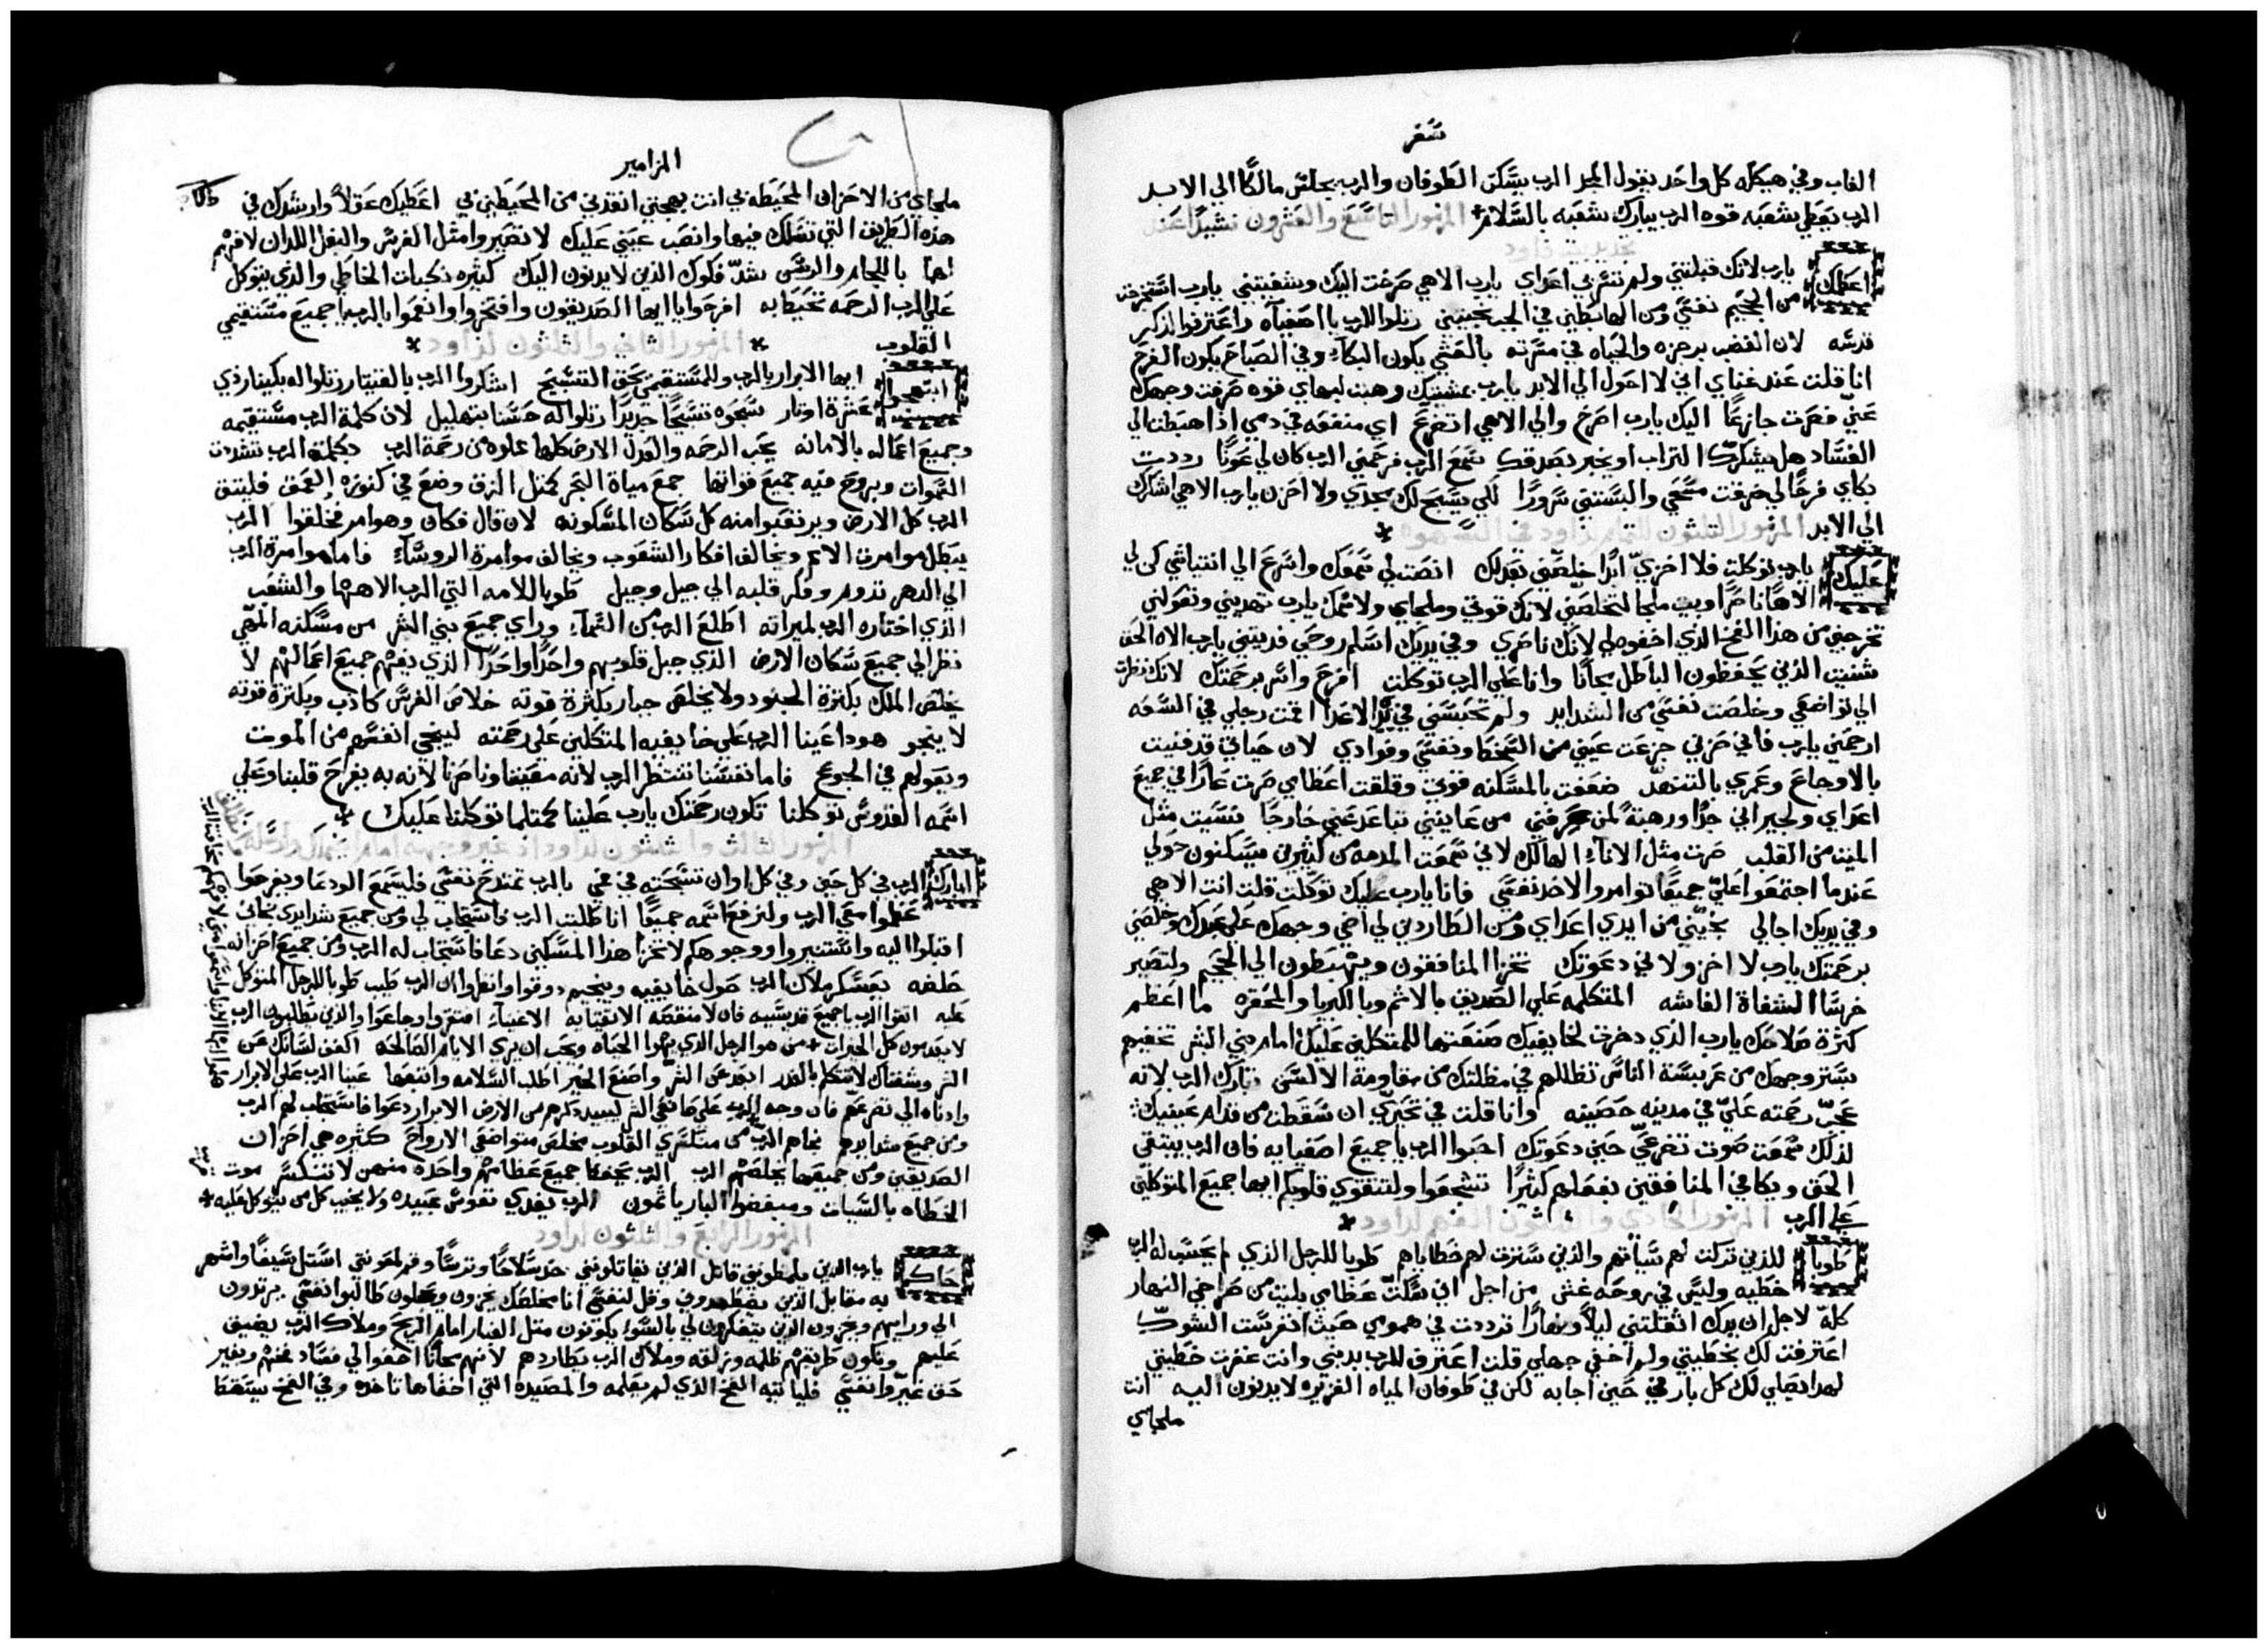 سفر
الغاب وفي هيكله كل واحد يقول المجد الرب يسكن الطوفان والرب يجلس مالكًا الي الابد
الرب يعطي شعبه قوه الرب يبارك شعبه بالسلام المزمور التاسع والعشرون نشيدًا عند
تجديد بيت داود
اعظمك يارب لانك قبلتني ولم تشرّ بي اعداي يارب الاهي صرخت اليك وشفيتني يارب استخرجت
من الجحيم نفسي ومن الهابطين في الجب نجيتني رتلوا للرب يا اصفيآه واعترفوا لذكر
قدسه لان الغضب برجزه والحياه في مسرته بالعشي يكون البكآء وفي الصباح يكون الفرح
انا قلت عند غناي اني لا احول الي الابد يارب بمشيتك وهبت لبهاي قوه صرفت وجهك
عنّي فصرت جازعًا اليك يارب اصرخ والي الاهي اتضرع اي منفعه في دمي اذا هبطت الي
الفساد هل يشكرك التراب او يخبر بصدقك سمع الرب فرحمني الرب كان لي عونًا رددت
بكاي فرحًا لي خرقت مسحي والبستني سرورًا لكي يسبح لك مجدي ولا احزن يارب الاهي اشكرك
الي الابد المزمور الثلثون للتمام لداود في السهوه
عليك يارب توكلت فلا اخزيّ ابدًا خلصني بعدلك انصت لي سمعك واسرع الي انتياشي كن لي
الاهًا ناصرًا وبيت ملجا لتخلصني لانك قوتي وملجاي ولاسمك يارب تهديني وتعولني
تخرجني من هذا الفخ الذي اخفوه لي لانك ناصري وفي يديك اسلم روحي فديتني يارب الاه الحق
شنيت الذين يحفظون الباطل مجانًا وانا علي الرب توكلت افرح واسر برحمتك لانك نظرت
الي تواضعي وخلصت نفسي من الشدايد ولم تحبسني في يد الاعدا اقمت رجلي في السعه
ارحمني يارب فاني حزني جزعت عيني من السخط ونفسي وفوادي لان حياتي قد فنيت
بالاوجاع وعمري بالتنهد ضعفت بالمسكنه قوتي وقلقت اعظامي صرت عارًا في جميع
اعداي ولجيراني جدًا ورهبةً لمن عرفني من عاينني تباعد عني خارجًا نسيت مثل
الميت من القلب صرت مثل الانآء الهالك لاني سمعت المذمه من كثيرين يسكنون حولي
عندما اجتمعوا عليّ جميعًا توامروا لاخذ نفسي فانا يارب عليك توكلت قلت انت الاهي
وفي يديك اجالي نجيني من ايدي اعداي ومن الطاردين لي اضي وجهك علي عبدك وخلصني
برحمتك يارب لا اخز ولاني دعوتك تخزا المنافقون ويهبطون الي الجحيم ولتصير
خرسًا الشفاة الغاشه المتكلمه علي الصديق بالاثم وبالكبريا والمحقره ما اعظم
كثرة صلاحك يارب الذي دخرت لخايفيك صنعتها للمتكلين عليك امام بني البشر تخفيهم
بستر وجهك من عربسة الناس تظللهم في مظلتك من مقاومة الالسن تبارك الرب لانه
عجب رحمته عليّ في مدينه حصينه وانا قلت في تحيّري ان سقطت من قدام عينيك
لذلك سمعت صوت تضرعي حين دعوتك احبوا الرب يا جميع اصفيايه فان الرب يبتغي
الحق ويكافي المنافقين بفعلهم كثيرًا تشجعوا ولتتقوي قلوبكم ايها جميع المتوكلين
علي الرب المزمور الحادي والثلثون الفهم لداود
طوبا للذين تركت لهم سيآتهم والذين سترت لهم خطاياهم طوبا للرجل الذي لم يحسب له الرب
خطيه وليس في روحه غش من اجل اني سكتّ عظامي بليت من صراخي النهار
كلّه لاجل ان يدك اثقلتني ليلاً ونهارًا ترددت في همومي حيث انغرست الشوك
اعترفت لك بخطيتي ولم اخفي جهلي قلت اعترف للرب بديني وانت غفرت خطيتي
لهذا يصلي لك كل بار في حين اجابه لكن في طوفان المياه الغزيره لا يدنون اليه انت
ملجاي
المزامير
ملجاي من الاحزان المحيطه بي انت بهجتي انقذني من المحيطين بي اعطيك عقلاً وارشدك في
هذه الطريق التي تسلك فيها وانصب عيني عليك لا تصيروا مثل الفرس والبغل اللذان لا فهم
لها باللجام والرسن شدّ فكوك الذين لا يدنون اليك كثيره نكبات الخاطي والذي يتوكل
علي الرب الرحمه تحيط به افرحوا يا ايها الصديقون وافتخروا وانعموا بالرب يا جميع مستقيمي
القلوب المزمور الثاني والثلثون لداود
ابتهجوا ايها الابرار بالرب وللمستقيمين يحق التسبيح اشكروا الرب بالقيتار رتلوا له بكينار ذي
عشرة اوتار سبحوه تسبيحًا جديدًا رتلوا له حسنا بتهليل لان كلمة الرب مستقيمه
وجميع اعماله بالامانه يحب الرحمه والعدل الارض كلها مملوه من رحمة الرب بكلمة الرب تشددت
السموات وبروح فيه جميع قواتها جمع مياة البحر كمثل الزق وضع في كنوزه العمق فليتق
الرب كل الارض ويرتعبوا منه كل سكان المسكونه لان قال فكان وهو امر فخلقوا الرب
يبطل موامرة الامم ويخالف افكار الشعوب ويخالف موامرة الروسآء فاما موامرة الرب
الي الدهر تدوم وفكر قلبه الي جيل وجيل طوبا للامه التي الرب الاهها والشعب
الذي اختاره الرب لميراثه اطلع الرب من السمآء وراي جميع بني البشر من مسكنه المهيّ
نظر الي جميع سكان الارض الذي جبل قلوبهم واحدًا واحدًا الذي يفهم جميع اعمالهم لا
يخلص الملك بكثرة الجنود ولا يخلص جبار بكثرة قوته خلاص الفرس كاذب وبكثرة قوته
لا ينجو هوذا عينا الرب علي خايفيه المتكلين علي رحمته لينجي انفسهم من الموت
ويعولهم في الجوع فاما نفسنا تنتظر الرب لانه معيننا وناصرنا لانه به يفرح قلبنا وعلي
اسمه القدوس توكلنا تكون رحمتك يارب علينا كمثلما توكلنا عليك
المزمور الثالث والثلثون لداود اذ غير وجهه امام ابيمالك
ابارك الرب في كل حين وفي كل اوان تسبحته في فمي بالرب تمتدح نفسي فليسمع الودعا ويفرحوا
عظموا معي الرب ولنرفع اسمه جميعًا انا طلبت الرب فاستجاب لي ومن جميع شدايدي نجاني
اقبلوا اليه واستنيروا ووجوهكم لا تخزا هذا المسكين دعا فاستجاب له الرب ومن جميع احزانه
خلصه يعسكر ملاك الرب حول خايفيه وينجيهم ذوقوا وانظروا ان الرب طيب طوبا للرجل المتوكل
عليه اتقوا الرب يا جميع قديسيه فان لا منقصه لاتقيايه الاغنيآء افتقروا وجاعوا والذين يطلبون الرب
لا يعدمون كل الخيرات من هو الرجل الذي يهوا الحياه ويحب ان يري الايام الصالحه اكفف لسانك عن
الشر وشفتاك لا تتكلم بالغدر ابعد عن الشر واصنع الخير اطلب السلامه واتبعها عينا الرب علي الابرار
واذناه الي تضرعهم فان وجه الرب علي صانعي الشر ليبيد ذكرهم من الارض الابرار دعوا فاستجاب لهم الرب
ومن جميع شدايدهم نجاهم الرب من منكسري القلوب مخلص متواضعي الارواح كثيره هي احزان
الصديقين ومن جميعها يخلصهم الرب الرب يحفظ جميع عظامهم واحده منهن لا تنكسر موت
الخطاه بالسيات ومبغضوا البار ياثمون الرب يفدي نفوس عبيده ولا يخيب كل من يتوكل عليه
المزمور الرابع والثلثون لداود
حاكم يارب الذين يظلموني قاتل الذين يقاتلونني خذ سلاحًا وترسًا وقم لمعونتي استل سيفًا واشهر
به مقابل الذين يضطهدوني وقل لنفسي انا مخلصك يخزون ويخجلون طالبوا نفسي يرتدون
الي ورايهم ويخزون الذين يتفكرون لي بالسوء يكونون مثل الغبار امام الريح وملاك الرب يضيق
عليهم وتكون طريقهم ظلمه وزلقه وملاك الرب يطاردهم لانهم مجانًا اخفوا لي فساد فخهم وبغير
حق عيّروا نفسي فلياتيه الفخ الذي لم يعلمه والمصيدة التي اخفاها تاخذه وفي الفخ يسقط
هلموا ايها الابنا واسمعوا مني لافهمكم مخافة الرب